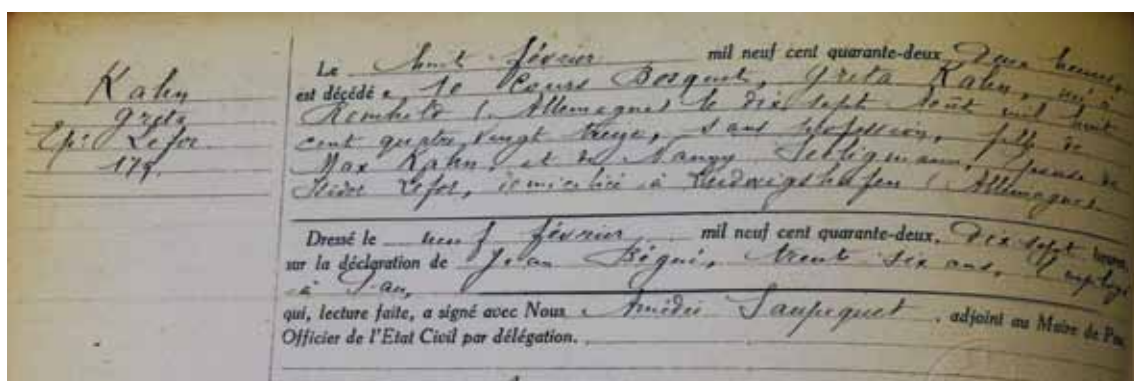 Kahn
Greta
Ep: Lefor
179
Le huit février mil neuf cent quarante-deux, Deux heures,
est décédée 10 Cours Bosquet, Greta Kahn, née à
Römhild (Allemagne) le dix sept Août mil huit
cent quatre vingt treize, sans profession, fille de
Max Kahn, et de Nanny Seeligmann, épouse de
Isidor Lefor, domiciliée à Ludwigshafen (Allemagne)
Dressé le neuf février mil neuf cent quarante-deux, Dix sept heures,
sur la déclaration de Jean Bégué, trente six ans, Employé
à Pau,
qui, lecture faite, a signé avec Nous Amédée Saupiquet, adjoint au Maire de Pau,
Officier de l'Etat Civil par délégation.